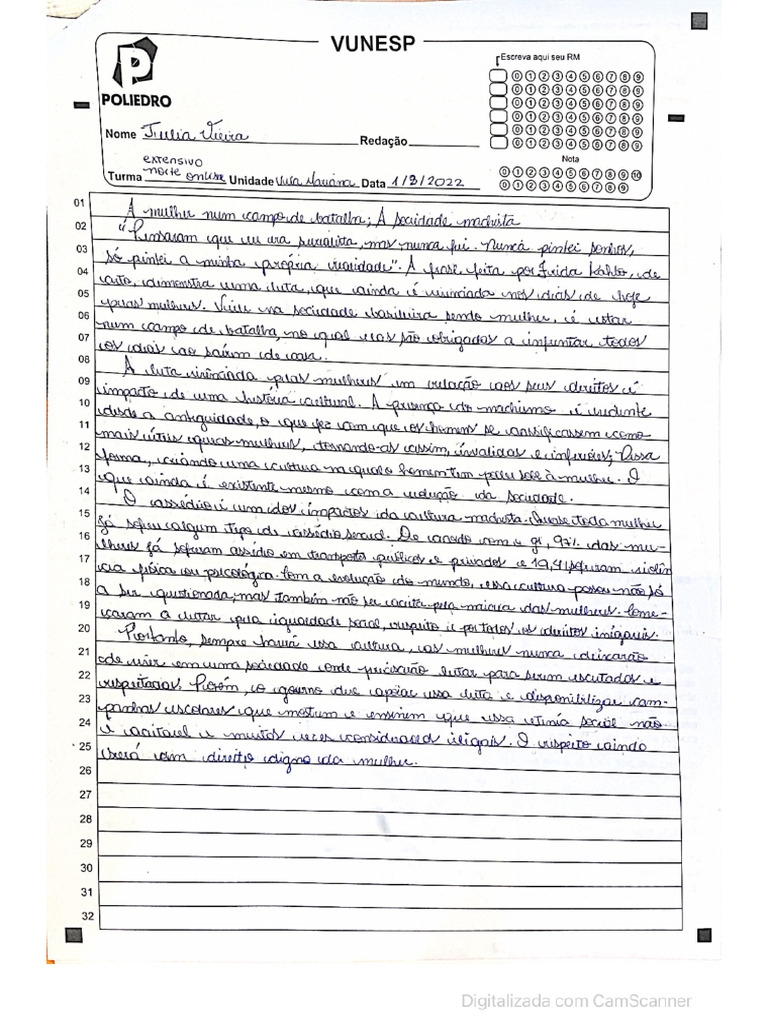 VUNESP
POLIEDRO
Escreva aqui seu RM
0 1 2 3 4 5 6 7 8 9
0 1 2 3 4 5 6 7 8 9
0 1 2 3 4 5 6 7 8 9
0 1 2 3 4 5 6 7 8 9
0 1 2 3 4 5 6 7 8 9
0 1 2 3 4 5 6 7 8 9
Nome Julia Vieira Redação
Nota
0 1 2 3 4 5 6 7 8 9 10
0 1 2 3 4 5 6 7 8 9
extensivo
Turma noite online Unidade Vila Mariana Data 1/8/2022
01 A mulher num campo de batalha; A sociedade machista
02 "Pensaram que eu era surrealista, mas nunca fui. Nunca pintei sonhos,
03 só pintei a minha própria realidade". A frase feita por Frida Kahlo, de
04 certo, demonstra uma luta, que ainda é vivenciada nos dias de hoje
05 pelas mulheres. Viver na sociedade brasileira sendo mulher, é estar
06 num campo de batalha, no qual elas são obrigadas a enfrentar todos
07 os dias ao saírem de casa.
08 A luta vivenciada pelas mulheres em relação aos seus direitos é
09 impacto de uma história cultural. A presença do machismo é evidente
10 desde a antiguidade, o que fez com que os homens se classificassem como
11 mais úteis que as mulheres, tornando-as assim, invalidas e inferiores; Dessa
12 forma, criando uma cultura na qual o homem tem posse sobre a mulher. O
13 que ainda é existente mesmo com a evolução da sociedade.
14 O assédio é um dos impactos da cultura machista. Quase toda mulher
15 já sofreu algum tipo de assédio sexual. De acordo com o g1, 97% das mu-
16 lheres já sofreram assédio em transporte públicos e privados e 19,4 sofreram violên
17 cia física ou psicológica. Com a evolução do mundo, essa cultura passou não só
18 a ser questionada, mas também não ser aceita pela maioria das mulheres. Come-
19 çaram a lutar pela igualdade social, respeito e por todos os direitos
20 Portanto, sempre haverá essa cultura, as mulheres nunca deixarão
21 de viver em uma sociedade onde precisarão lutar para serem escutadas e
22 respeitadas. Porém, o governo deve apoiar essa luta e disponibilizar cam-
23 panhas escolares que mostrem e ensinem que essa social não
24 é aceitável e muitas vezes consideradas ilegais. O respeito ainda
25 será um direito digno da mulher.
26
27
28
29
30
31
32
Digitalizada com CamScanner